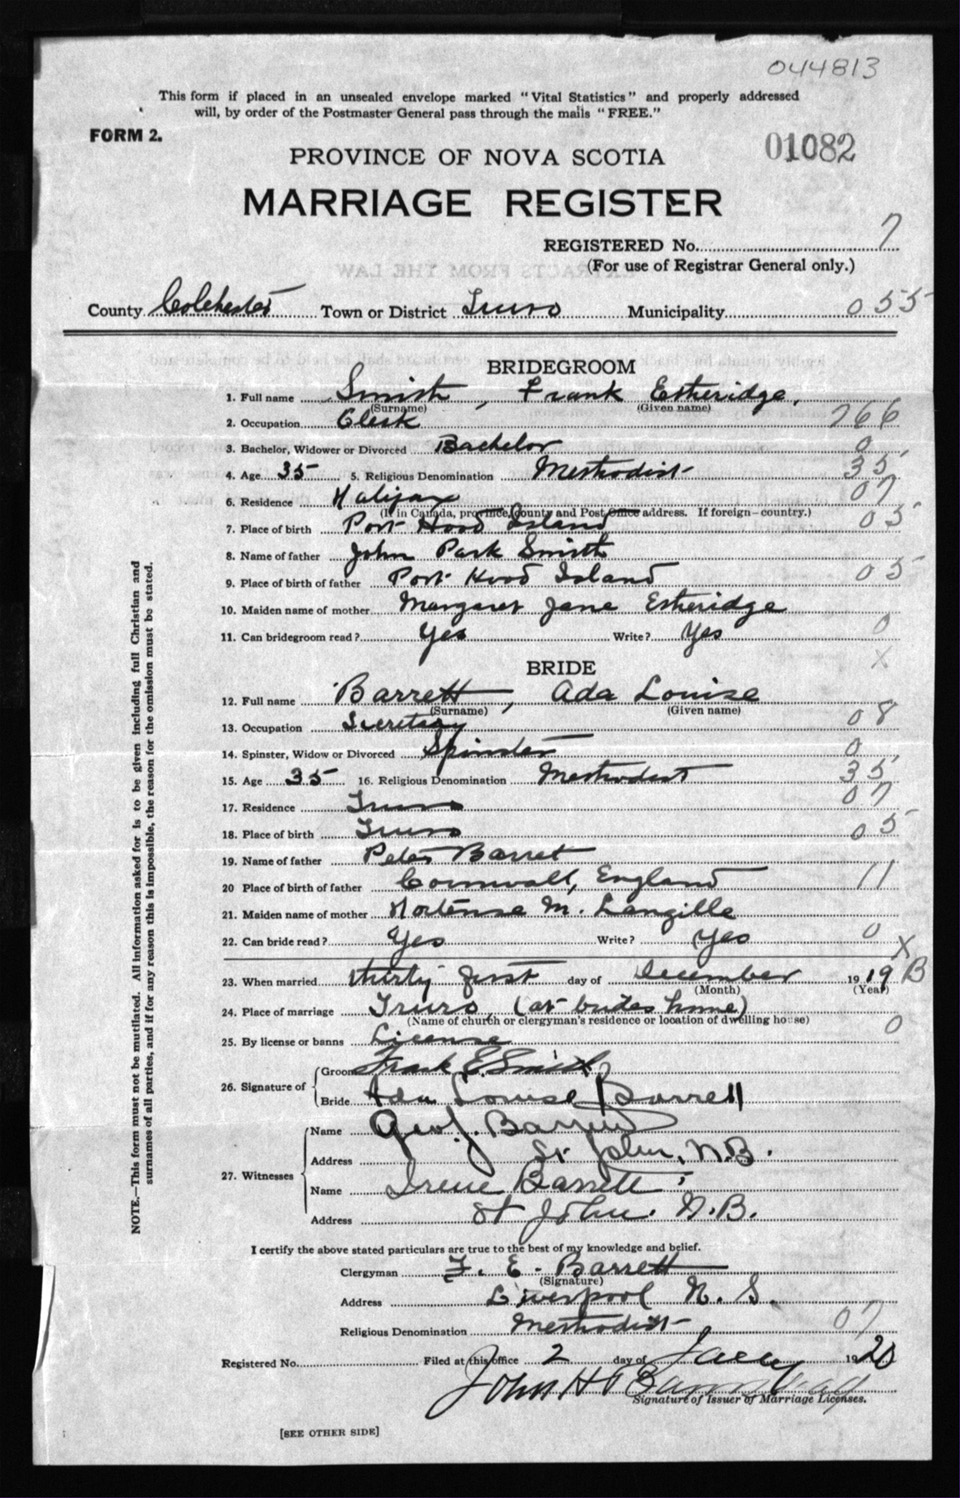 044813
This form if placed in an unsealed envelope marked "Vital Statistics" and properly addressed
will, by order of the Postmaster General pass through the mails "FREE."
FORM 2.
01082
PROVINCE OF NOVA SCOTIA
MARRIAGE REGISTER
REGISTERED No. 7
(For use of Registrar General only.)
County Colchester Town or District Truro Municipality 055
BRIDEGROOM
1. Full name Smith, Frank Etheridge.
(Surname) (Given name)
2. Occupation Clerk 266
3. Bachelor, Widower or Divorced Bachelor 0
4. Age 35 5. Religious Denomination Methodist 35
6. Residence Halifax 07
(If in Canada, province, county and Post Office address. If foreign—country.)
7. Place of birth Port Hood Island 05
8. Name of father John Park Smith
9. Place of birth of father Port Hood Island 05
10. Maiden name of mother Margaret Jane Etheridge
11. Can bridegroom read? Yes Write? Yes 0
X
BRIDE
12. Full name Barrett, Ada Louise
(Surname) (Given name)
13. Occupation Secretary 08
14. Spinster, Widow or Divorced Spinster 0
15. Age 35 16. Religious Denomination Methodist 35
17. Residence Truro 07
18. Place of birth Truro 05
19. Name of father Peter Barret
20 Place of birth of father Cornwall, England 11
21. Maiden name of mother Hortense M. Langille
22. Can bride read? Yes Write? Yes 0
X
23. When married thirty first day of December 19 19 B
(Month) (Year)
24. Place of marriage Truro (at brides home)
(Name of church or clergyman's residence or location of dwelling house) 0
25. By license or banns License
26. Signature of Groom Frank E. Smith
Bride Ada Louise Barrett
27. Witnesses
Name Geo. J.
Address St John, N.B.
Name Irene Barrett
Address St John. N.B.
I certify the above stated particulars are true to the best of my knowledge and belief.
Clergyman F. E. Barrett
(Signature)
Address Liverpool N. S.
Religious Denomination Methodist 07
Registered No. Filed at this office 2 day of Jany 1920
John H
Signature of Issuer of Marriage Licenses.
[SEE OTHER SIDE]
NOTE.—This form must not be mutilated. All information asked for is to be given including full Christian and
surnames of all parties, and if for any reason this is impossible, the reason for the omission must be stated.